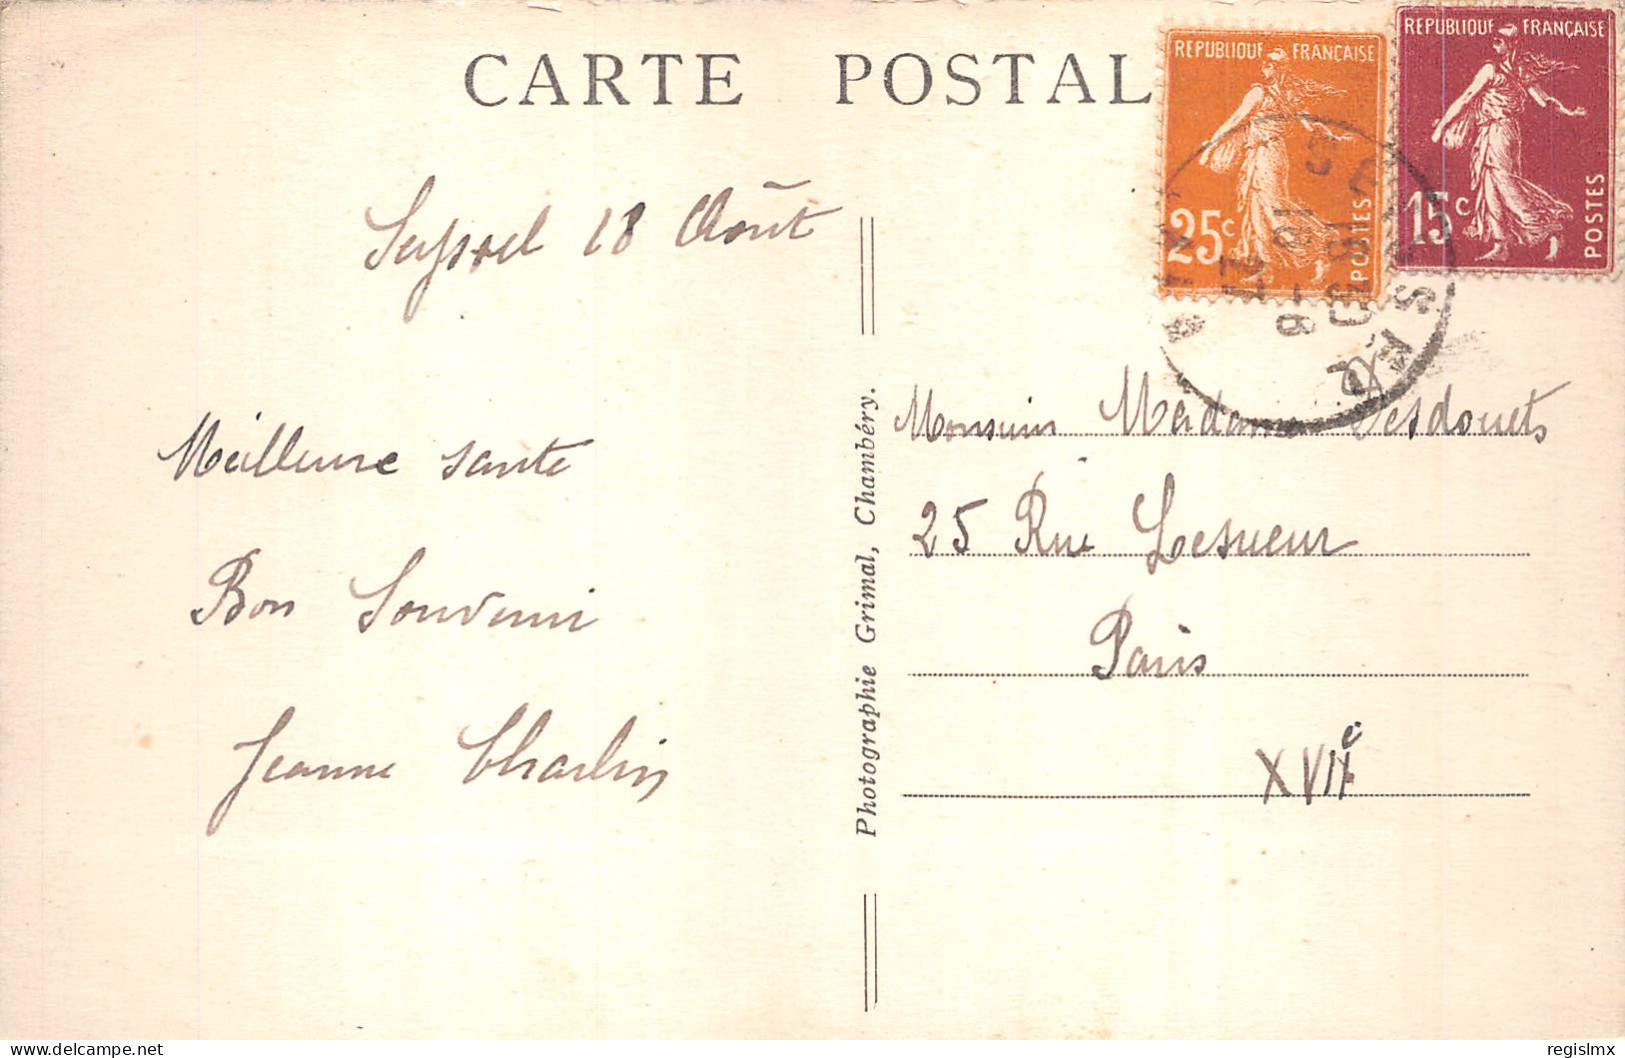 CARTE POSTAL
REPUBLIQUE FRANÇAISE
25c
POSTES
REPUBLIQUE FRANÇAISE
15c
POSTES
18 30
18 - 8
27
Seyssel 18 Août
Meilleure santé
Bon Souvenir
Jeanne Charlin
Photographie Grimal, Chambéry.
Monsieur Madame Desdouets
25 Rue Lesueur
Paris
XVIIe
delcampe.net
regislmx